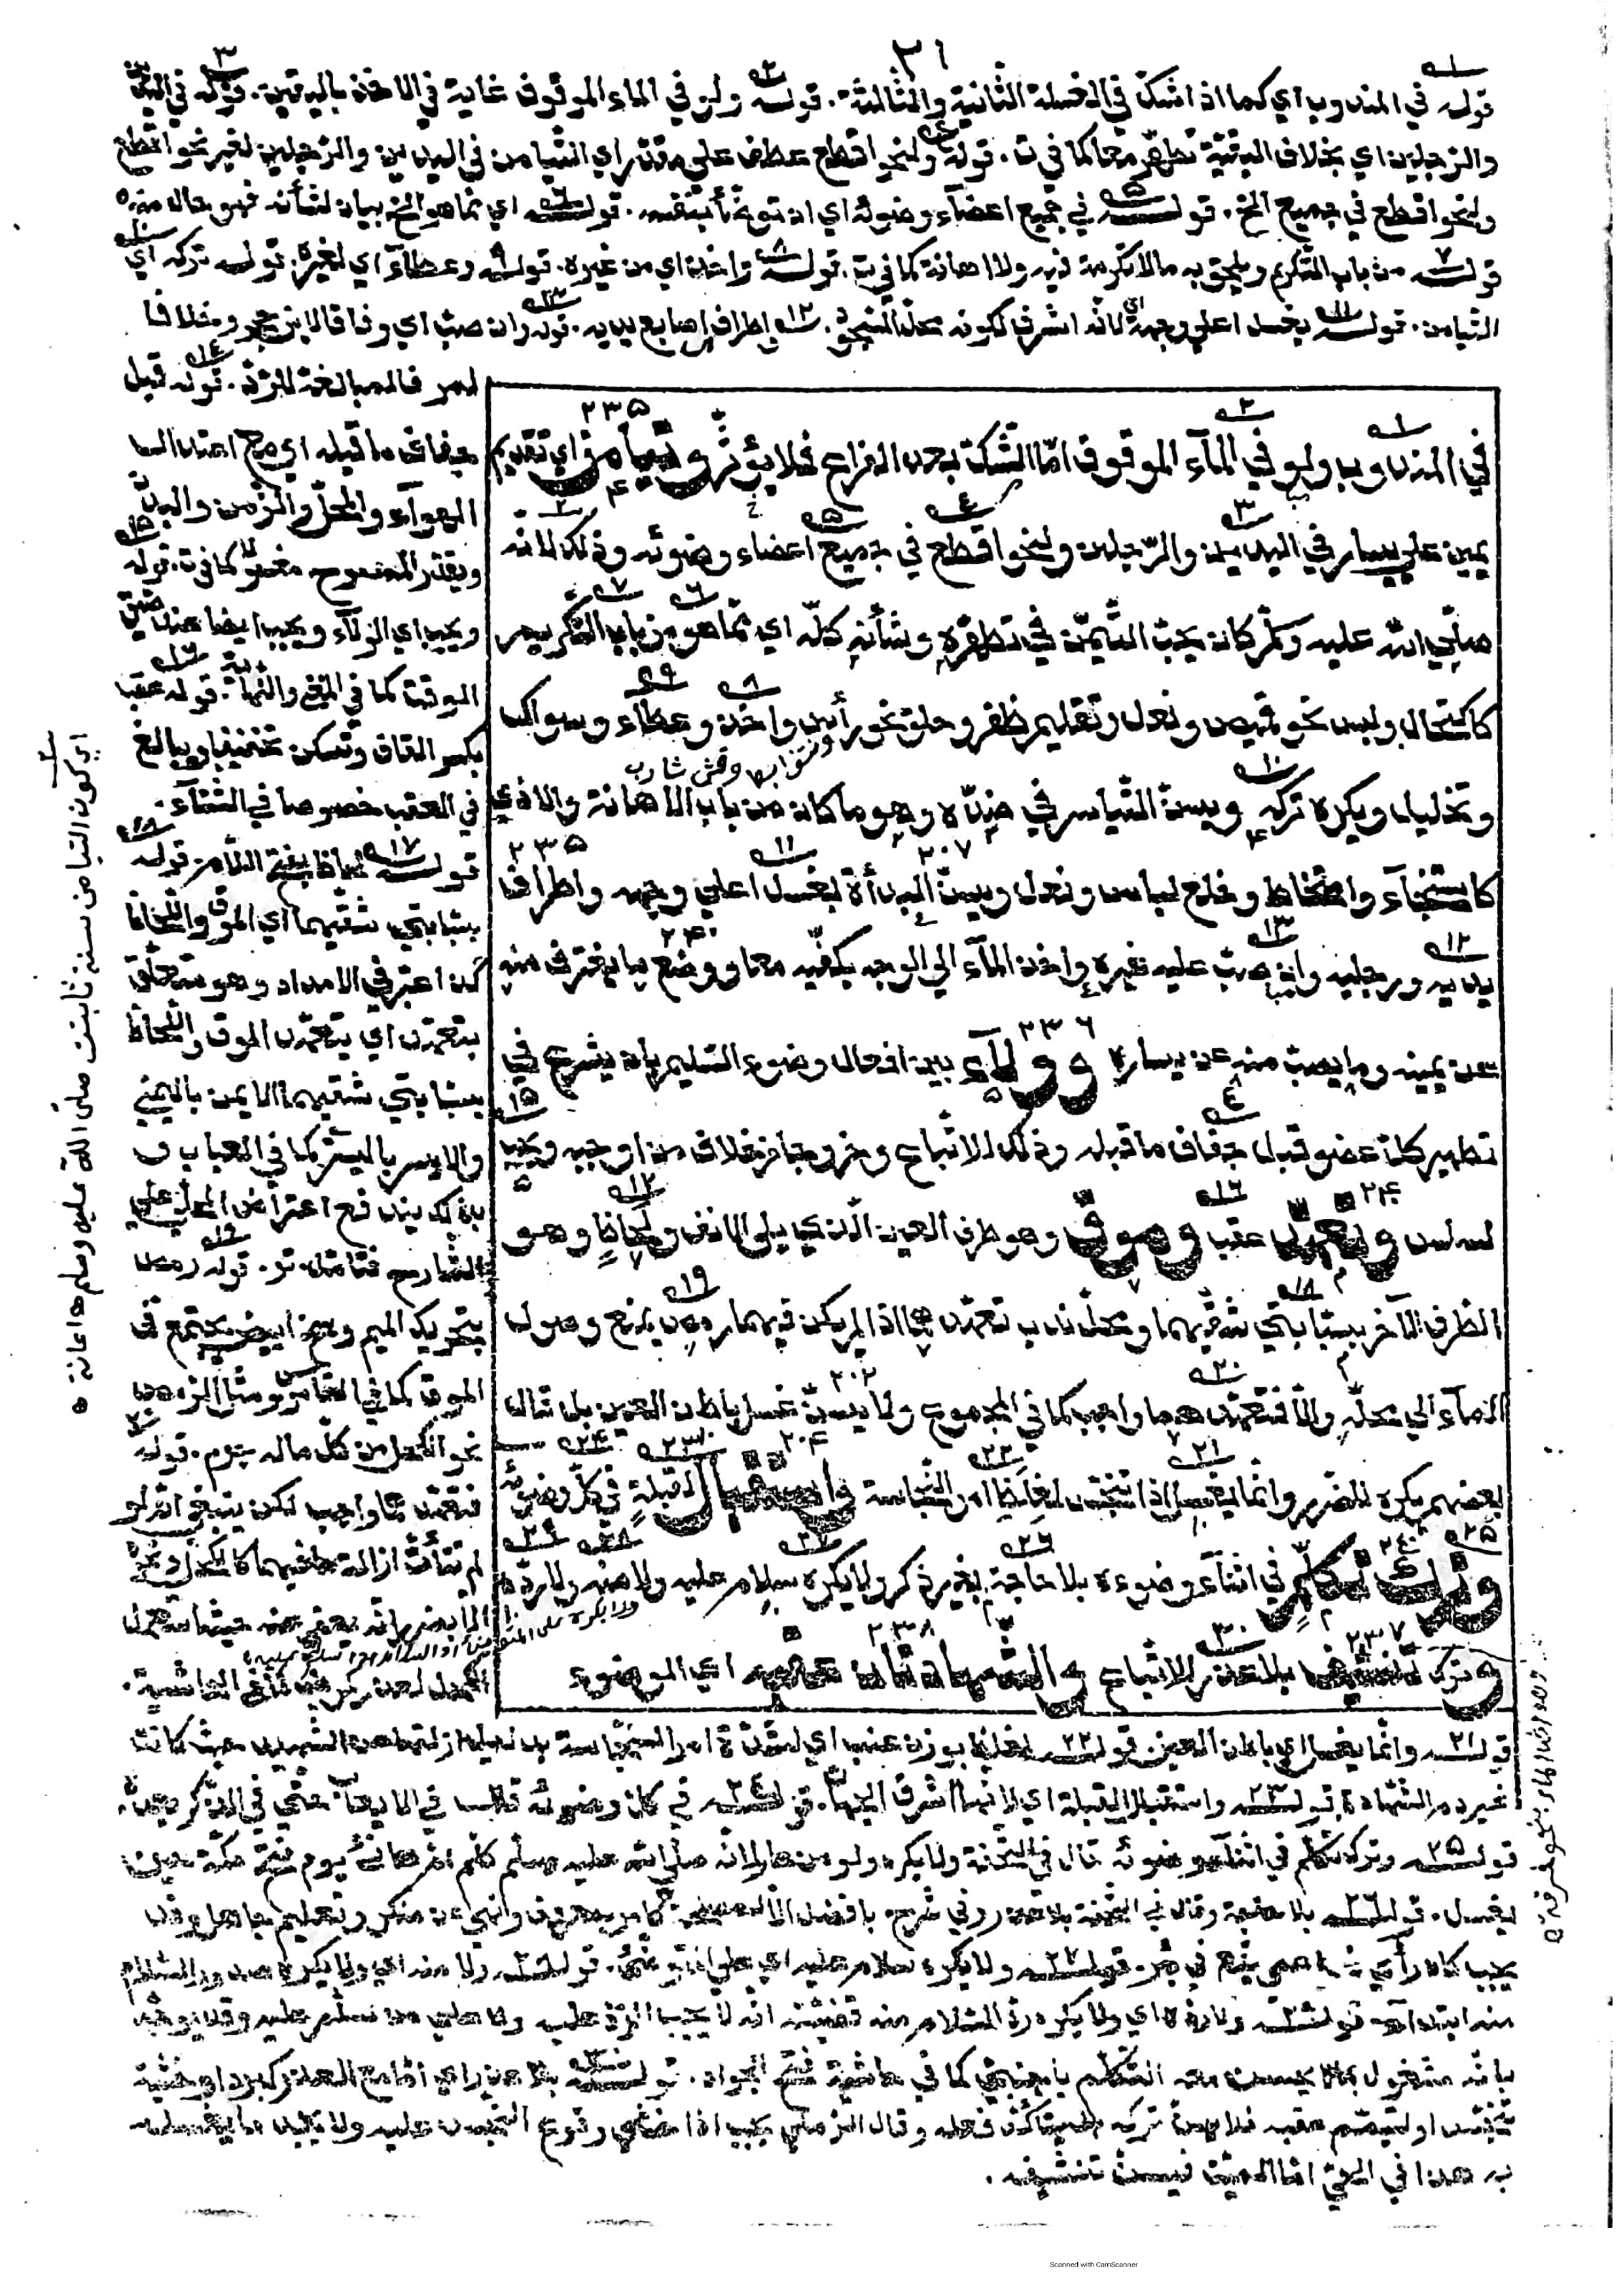 ٣١
قوله في المندوب اي كما اذا شك في الغسلة الثانية والثالثة. قوله ولو في الماء الموقوف غاية في الاخذ باليقين. قوله في اليدين
والرجلين اي بخلاف البقية تطهر معا كما في ت. قوله ولنحو اقطع عطف على مقدر اي التيامن في اليدين والرجلين لغير نحو اقطع
ولنحو اقطع في جميع الخ. قوله في جميع اعضاء وضوئه اي ان توضأ بنفسه. قوله اي مما هو الخ بيان لشأنه فهو حال منه
قوله من باب التكريم ويلحق به ما لا تكرمة فيه ولا اهانة كما في ت. قوله واخذ اي من غيره. قوله وعطاء اي لغيره. قوله تركه اي
التيامن. قوله بغسل اعلى وجهه اي لانه اشرف لكونه محل السجود. واطراف اصابع يديه. قوله وان صب اي وفاقا لابن حجر وخلافا
لمر فالمبالغة للرد. قوله قبل
جفاف ما قبله اي مع اعتدال
الهواء والمحل والزمن والبدن
ويقدر الممسوح مغسولا كما في ت. قوله
ويجب اي الولاء ويجب ايضا عند ضيق
الوقت كما في المغني والنهاية. قوله عقب
بكسر القاف وتسكن تخفيفا ويبالغ
في العقب خصوصا في الشتاء.
قوله لحاظ بفتح اللام. قوله
بسبابتي شقيهما اي الموق واللحاظ
كذا اعتبر في الامداد وهو متعلق
بتعهد اي يتعهد الموق واللحاظ
بسبابتي شقيهما الايمن باليمنى
والايسر باليسرى كما في العباب و
بذلك يندفع اعتراض المحلي على
الشارح فتأمله تو. قوله رمص
بتحريك الميم وسخ ابيض يجتمع في
الموق كما في القاموس ومثل الرمص
نحو الكحل من كل ما له جرم. قوله
فتعهدهما واجب لكن ينبغي انه لو
لم تتأت ازالة ما فيهما كالكحل ونحوه
الا بضرر انه يعفى عنه حيث استعمل
الكحل لعذر
في المندوب ولو في الماء الموقوف اما الشك بعد الفراغ فلا يؤثر وتيامن اي تقديم
يمين على يسار في اليدين والرجلين ولنحو اقطع في جميع اعضاء وضوئه وذلك لانه
صلى الله عليه وسلم كان يحب التيمن في تطهره وشأنه كله اي مما هو من باب التكريم
كاكتحال ولبس نحو قميص ونعل وتقليم ظفر وحلق نحو رأس واخذ وعطاء وسواك
وقص شارب
وتخليل ويكره تركه ويسن التياسر في ضده وهو ما كان من باب الاهانة والاذي
كاستنجاء وامتخاط وخلع لباس ونعل ويسن البدأة بغسل اعلى وجهه واطراف
يديه ورجليه وان صب عليه غيره واخذ الماء الى الوجه بكفيه معا ووضع ما يغترف منه
عن يمينه وما يصب منه عن يساره وولاء بين افعال وضوء السليم بان يشرع في
تطهير كل عضو قبل جفاف ما قبله وذلك للاتباع وخروجا من خلاف من اوجبه ويجب
لسلس وتعهد عقب وموق وهو طرف العين الذي يلي الانف ولحاظ وهو
الطرف الآخر بسبابتي شقيهما ومحل ندب تعهدهما اذا لم يكن فيهما رمص يمنع وصول
الماء الى محله والا فتعهدهما واجب كما في المجموع ولا يسن غسل باطن العين بل قال
بعضهم يكره للضرر وانما يغسل اذا تنجس لغلظ امر النجاسة واستقبال القبلة في كل وضوئه
وترك تكلم في اثناء وضوءه بلا حاجة بغير ذكر ولا يكره سلام عليه ولا منه ولا رده
وترك تنشيف بلا عذر للاتباع والشهادتان عقبه اي الوضوء
قوله وانما يغسل اي باطن العين. قوله لغلظ بوزن عنب اي لشدة امر النجاسة بدليل ازالتها عن الشهيد حيث كانت
غير دم الشهادة. قوله واستقبال القبلة اي لانها اشرف الجهات. قوله في كل وضوئه
قوله وترك تكلم في اثناء وضوئه قال في التحفة ولا يكره ولو من عار لانه صلى الله عليه وسلم كلم ام هانئ يوم فتح مكة حين
يغتسل. قوله بلا حاجة وقال في التحفة بلا عذر وفي شرح بافضل الا لمصلحة كامر بمعروف ونهي عن منكر وتعليم جاهل وقد
يجب كان رأى نحو اعمى يقع في بئر. قوله ولا يكره سلام عليه اي على المتوضئ. قوله ولا منه اي ولا يكره صدور السلام
منه ابتداء. قوله ولا رده اي ولا يكره رد السلام منه قضيته انه لا يجب الرد عليه ولا على من سلم عليه وقد يوجه
بانه مشغول بما لا يحسن معه التكلم باجنبي كما في حاشية فتح الجواد. قوله بلا عذر اي اما مع العذر كبرد او خشية
تنجس او لتيمم عقبه فلا يسن تركه بل يتأكد فعله وقال الرملي يجب اذا خشي وقوع النجس عليه ولا يجد ما يغسله
به هذا في الحي اما الميت فيسن تنشيفه.
اي كون التيامن سنة ثابت صلى الله عليه وسلم
Scanned with CamScanner